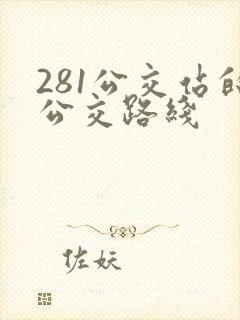 281公交佔的
公交路綫
佐妖